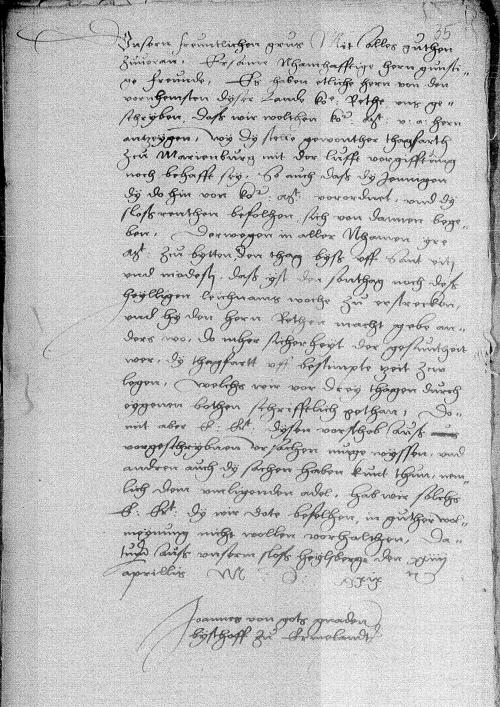 35
Unsern freuntlichen grus Mit alles guthen
zuvoran. Ersame Nhamhafftige hern gunsti-
ge freunde. Es haben etliche hern von den
vornhemsten dyser Lande koe: Rethe uns ge-
schryben, daß wir wolthen ko: Mt: u: a: hern
antzeygen, wy dy stelle gewonther thagfarth
zcu Marienburg mit der lufft vorgifftung
noch behafft sey. So auch daß dy jennigen
dy do hin von ko: Mt: vorordnet, und dy
sloß renthen befolhen, sich von dannen bege-
ben. Derwegen in aller Nhamen ire
Mt: zu bytten den thag byß uff Sant viti
und modesti, daß yst den sonthag noch deß
heylligen leichnams woche zu erstrecken,
und hy den hern Rethen macht gebe an-
ders wo, do mher sicherheyt der gesuntheit
wer, dy thagfartt uff bestimpte zeit zcu
legen, Welchs wir vor drey thagen durch
eygenen bothen schrifftlich gethan, Do-
mit aber E: Ht: dysen vorschob auß
vorgeschrybnen ursachen muge wyssen, und
andren auch dy sachen haben kunt thun, nem-
lich dem umligenden adel, hab wir solchs
E: Ht: dy wir Gote befelhen, in guther wol-
meynung nicht wollen vorhalthen, Da-
tum auß unserm sloß heylsberg den xiiij
aprillis M D xxix
Joannes von gots gnaden
byschoff zu Ermelandt